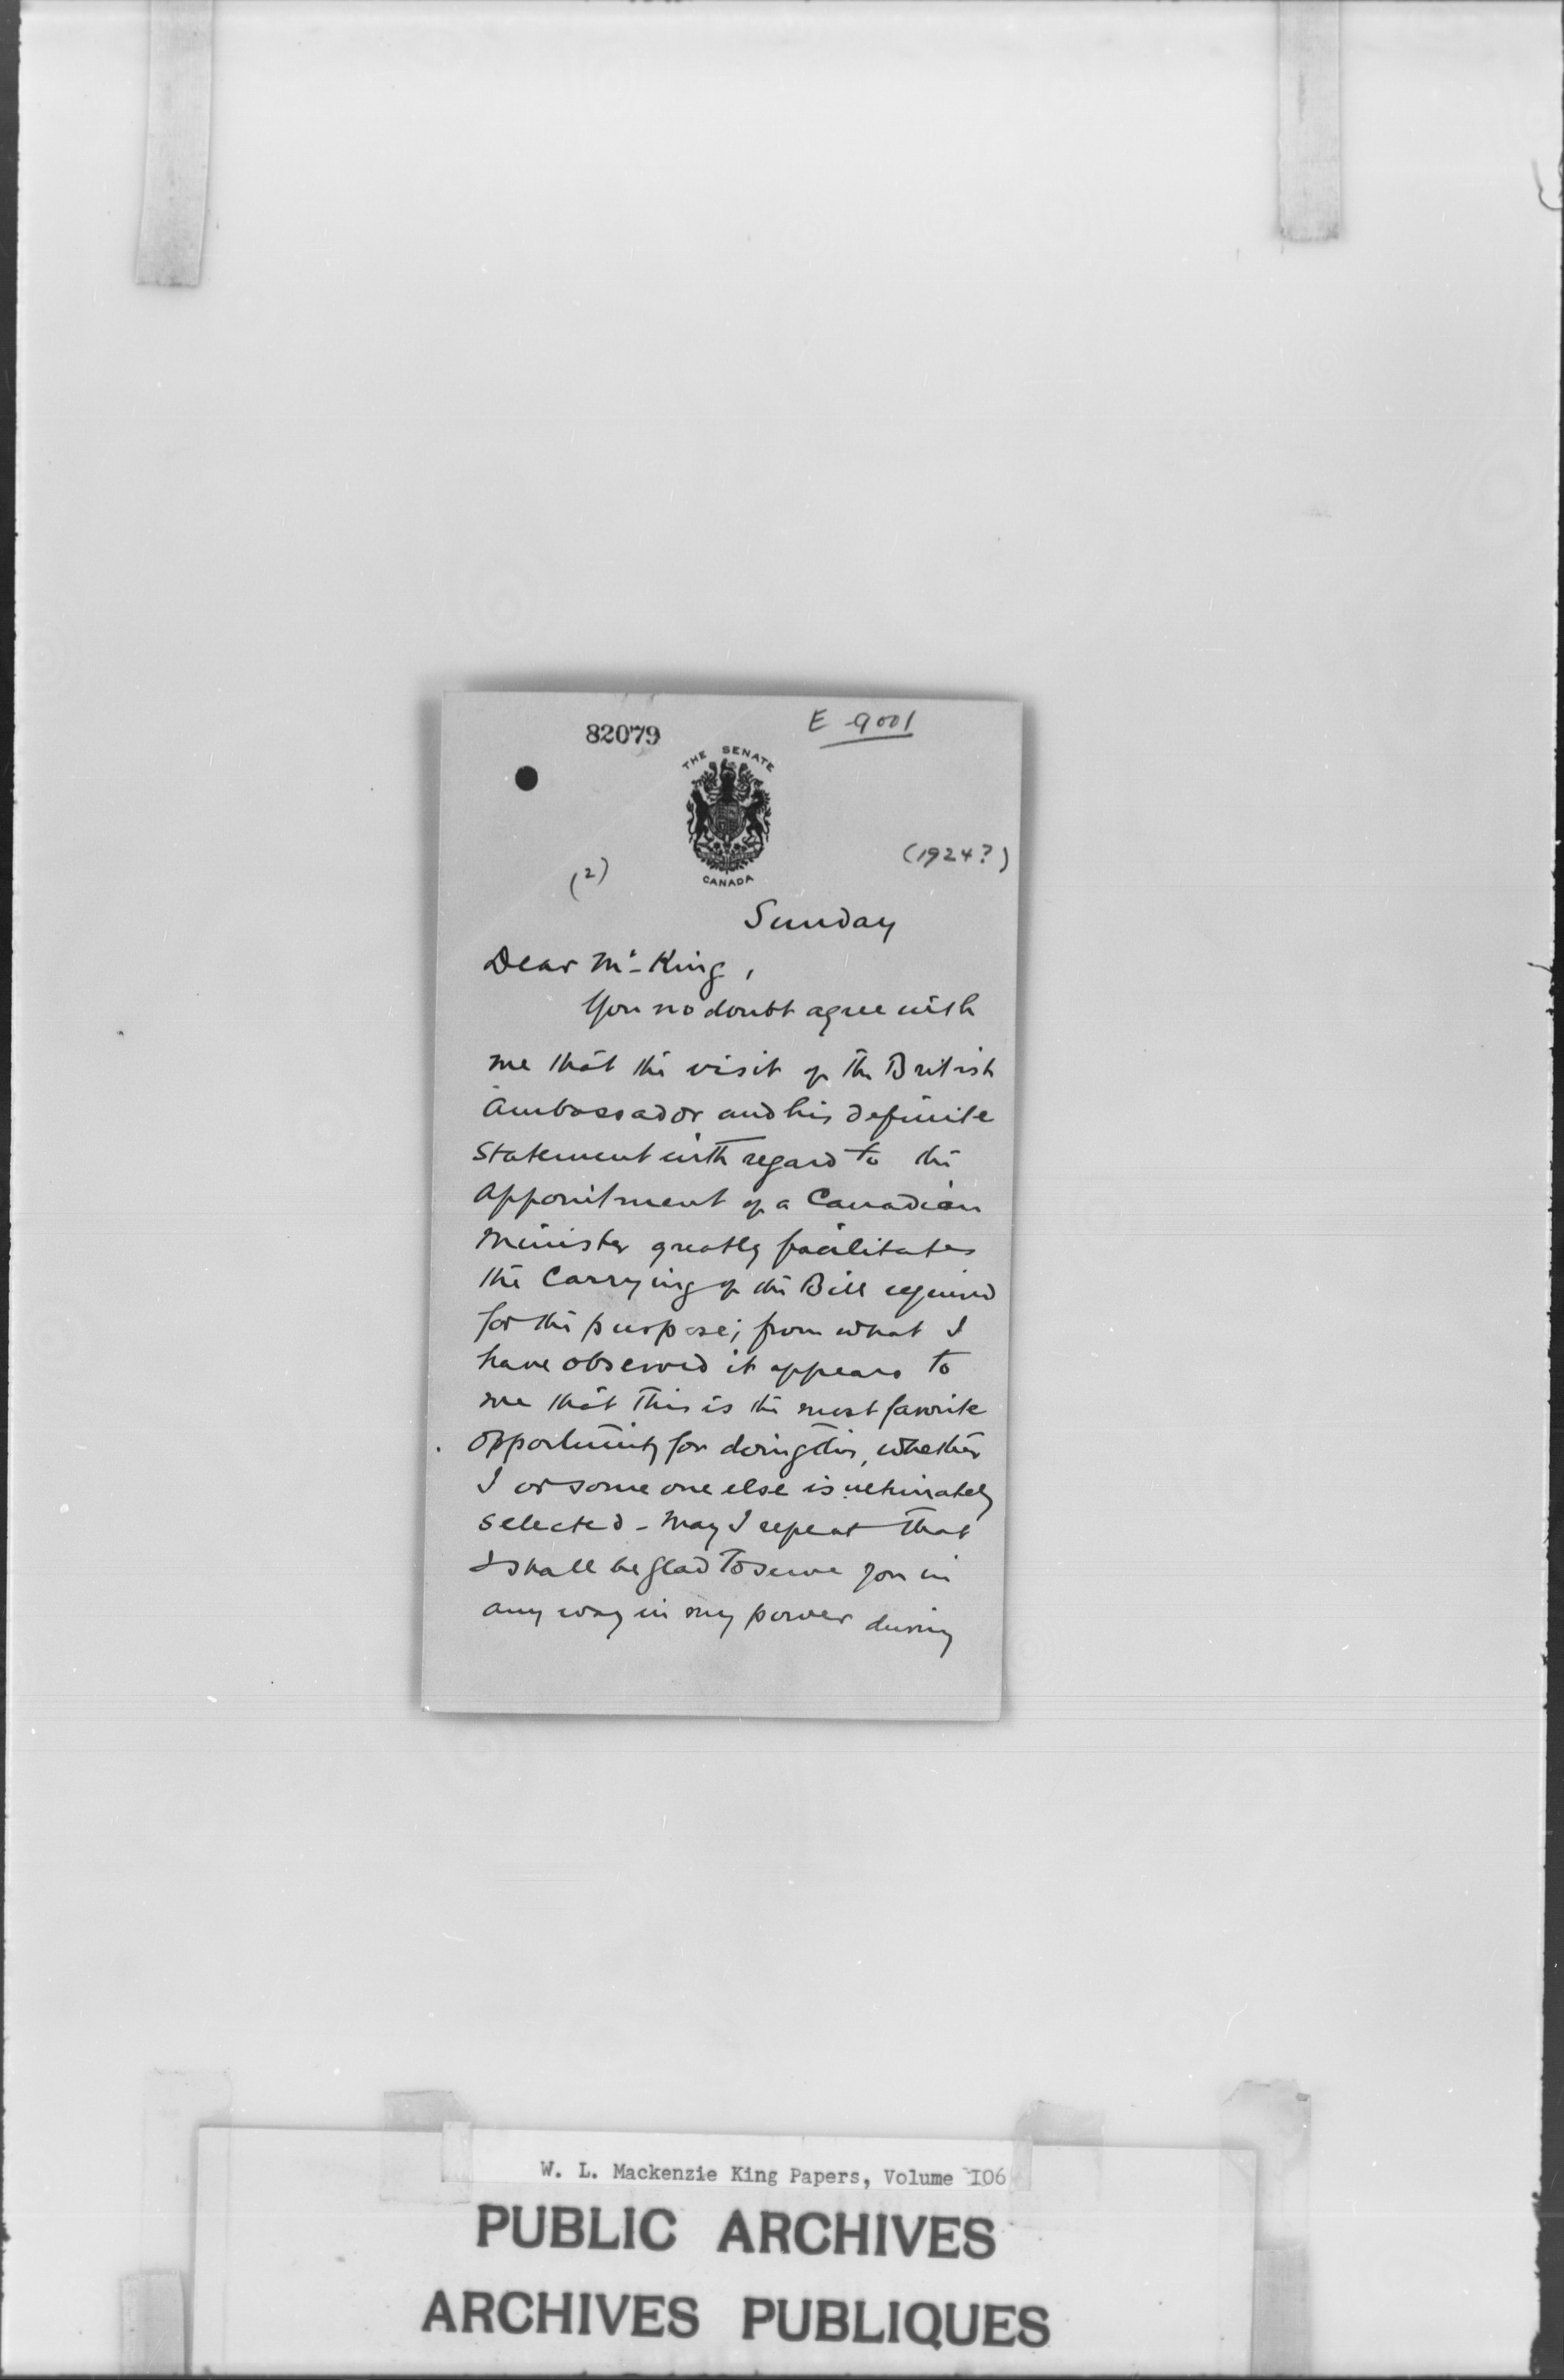 82079
E-9001
THE SENATE
CANADA
(1924?)
(2)
Sunday
Dear Mr King,
You no doubt agree with
me that the visit of the British
Ambassador and his definite
statement with regard to the
appointment of a Canadian
Minister greatly facilitates
the carrying of the Bill required
for the purpose; from what I
have observed it appears to
me that this is the most favorite
opportunity for doing this, whether
I or some one else is ultimately
selected - May I repeat that
I shall be glad to serve you in
any way in my power during
W. L. Mackenzie King Papers, Volume 106
PUBLIC ARCHIVES
ARCHIVES PUBLIQUES